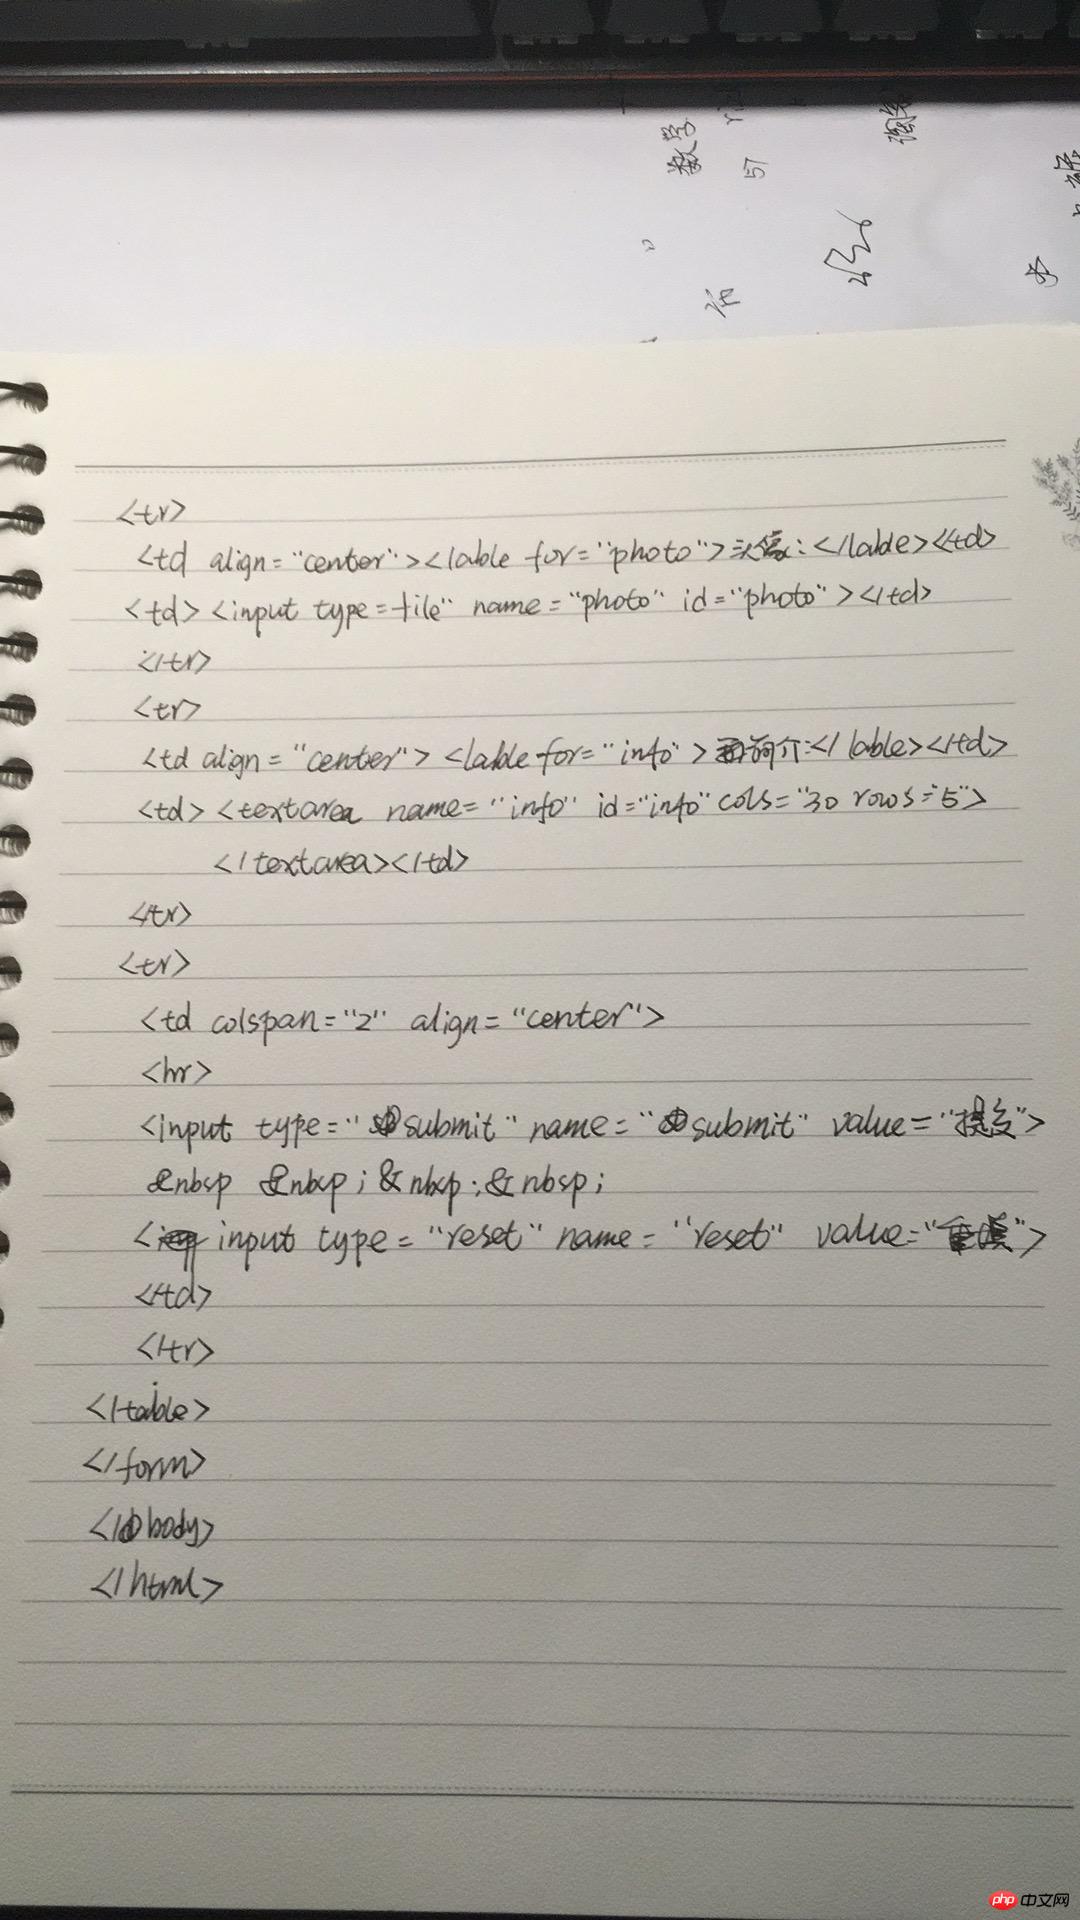 数号
57
<tr>
<td align="center"><lable for="photo">头像:</lable></td>
<td><input type=file" name="photo" id="photo"></td>
</tr>
<tr>
<td align="center"> <lable for="info">简介:</lable></td>
<td><textarea name="info" id="info" cols="30 rows="5">
</textarea></td>
</tr>
<tr>
<td colspan="2" align="center">
<hr>
<input type="submit" name="submit" value="提交">
&nbsp &nbsp; &nbsp; &nbsp;
<input type="reset" name="reset" value="重填">
</td>
</tr>
</table>
</form>
</body>
</html>
php 中文网